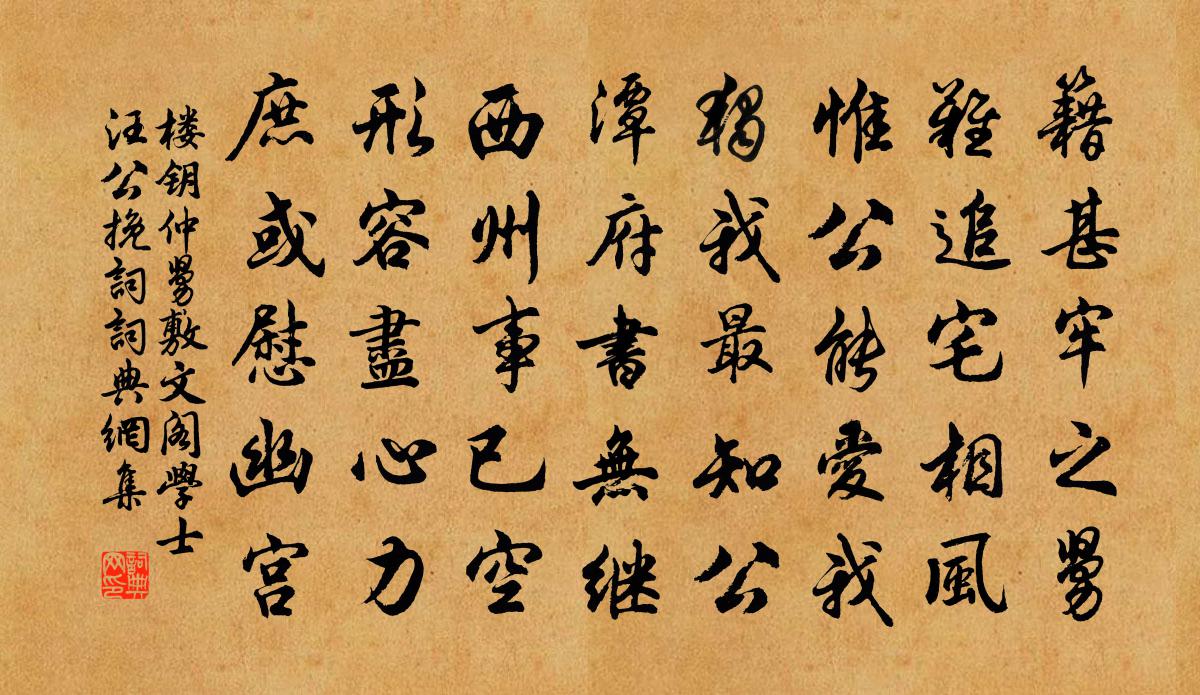 籍甚牢之舅
難追宅相風
惟公能愛我
獨我最知公
潭府書無继
西州事已空
形容盡心力
庶或慰幽宫
楼钥仲舅敷文阁學士
汪公挽詞詞典網集
詞典网印